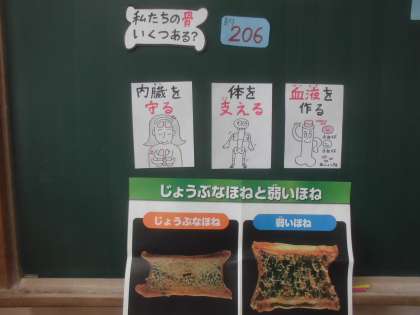 私たちの骨
いくつある?
約206
内臓を
守る
体を
支える
血液を
作る
じょうぶなほねと弱いほね
じょうぶなほね
弱いほね